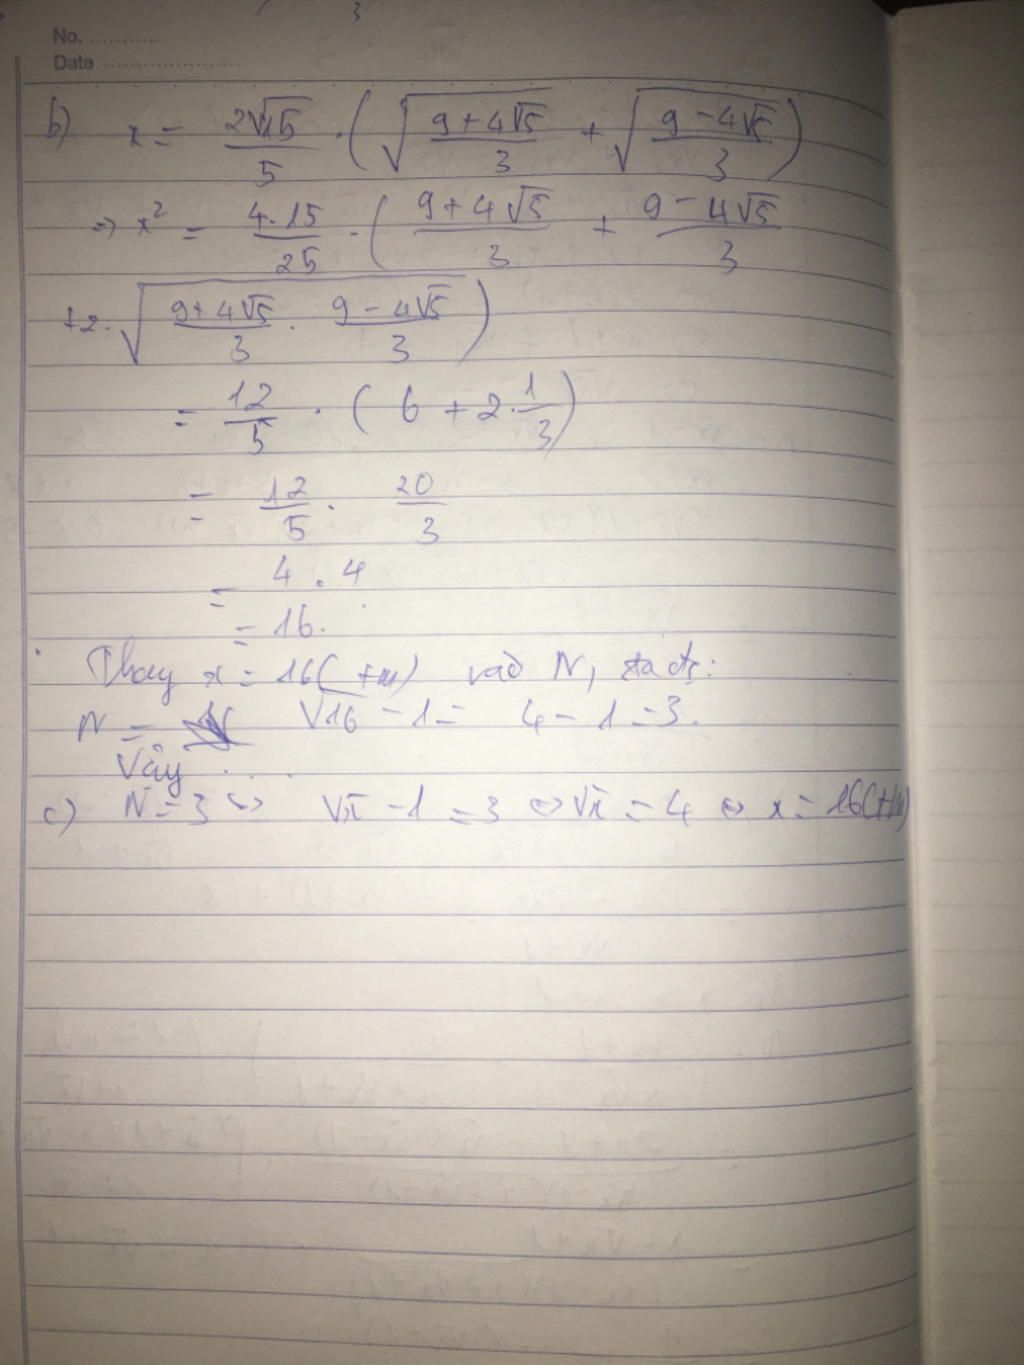 No. ...........
Date ......................
b) x = 2√15/5 · (√((9+4√5)/3) + √((9-4√5)/3))
=> x² = 4.15/25 · ((9+4√5)/3 + (9-4√5)/3
+2.√((9+4√5)/3 . (9-4√5)/3))
= 12/5 · (6 + 2.1/3)
= 12/5 . 20/3
= 4 . 4
= 16.
Thay x = 16 (+m) vào N, ta đc:
N = √16 - 1 = 4 - 1 = 3.
Vậy ....
c) N = 3 <=> √x - 1 = 3 <=> √x = 4 <=> x = 16 (+m)